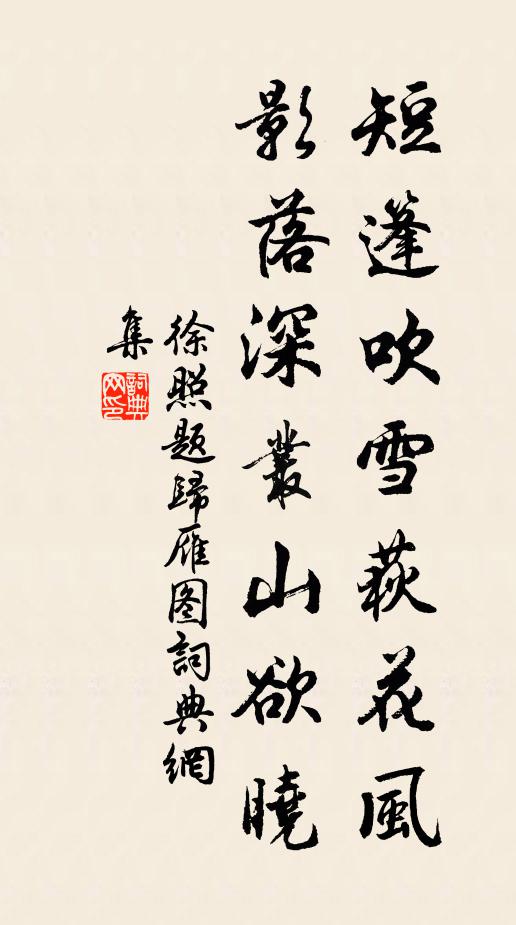 短篷吹雪荻花風
影落深叢山欲曉
徐照題歸雁图詞典網
集
詞典网印